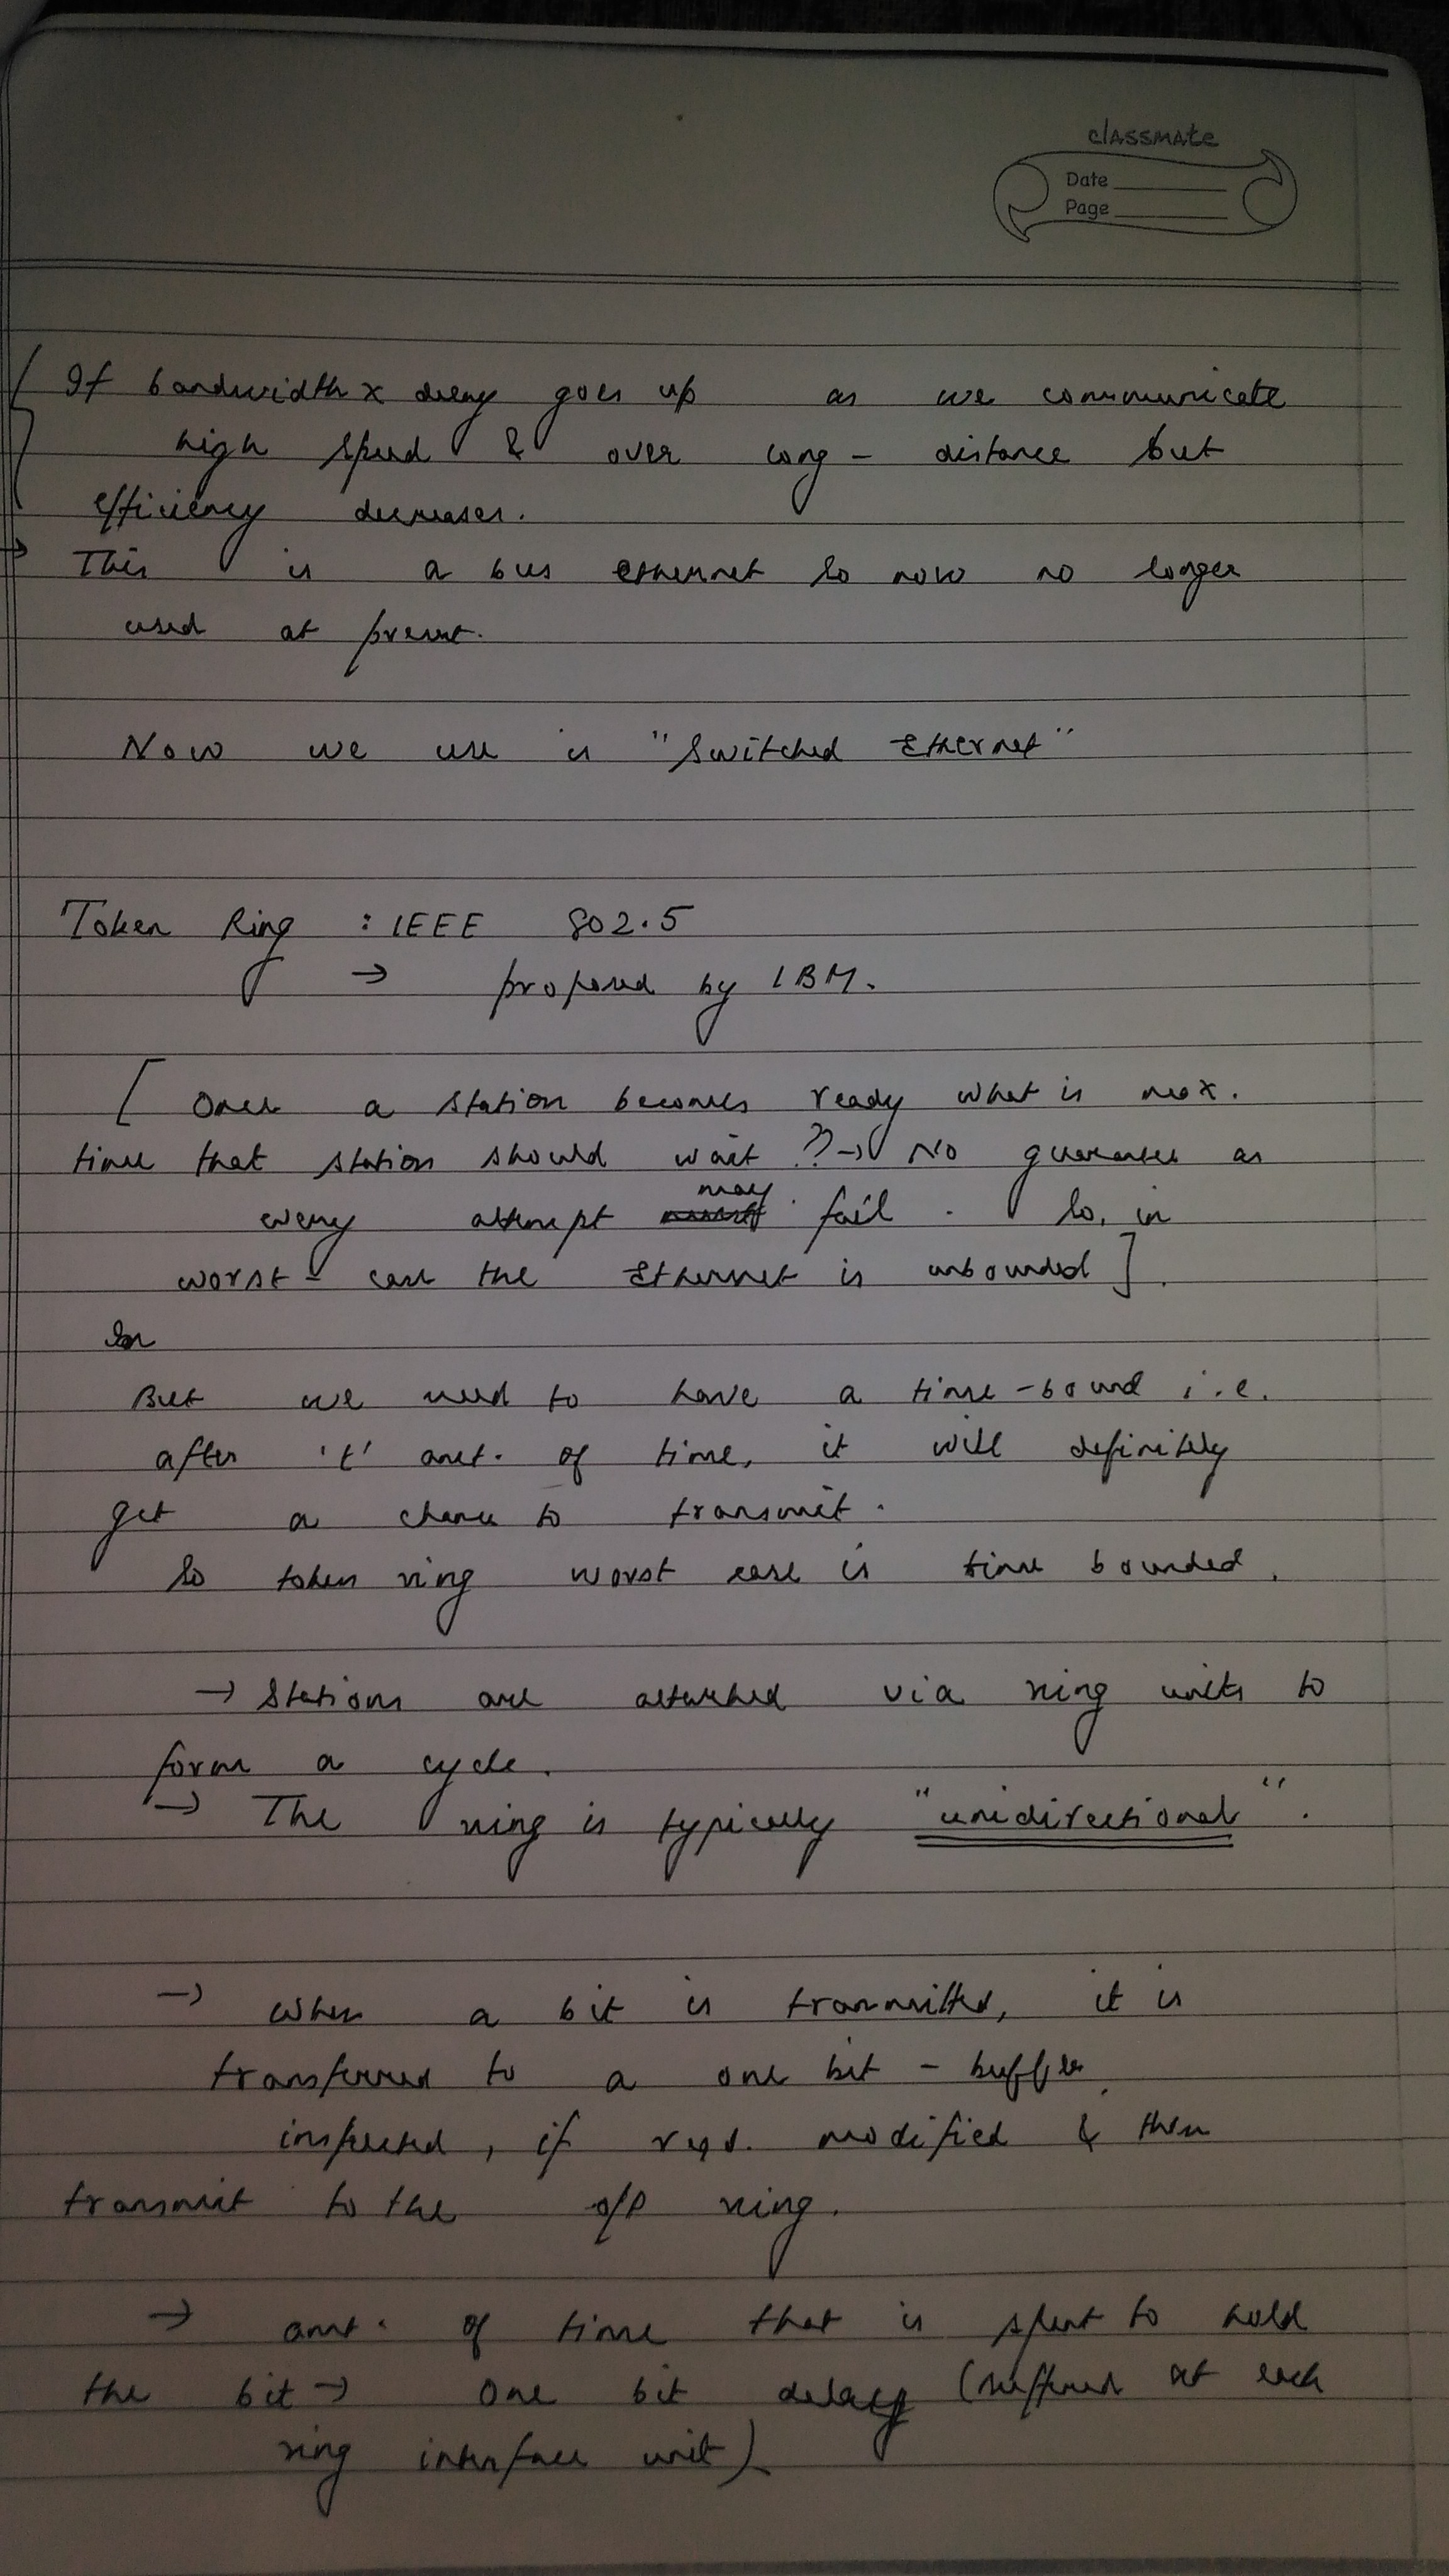 classmate
Date
Page
If bandwidth x delay goes up as we communicate
high speed & over long - distance but
efficiency decreases.
→ This is a bus ethernet so now no longer
used at present.
Now we use is "Switched Ethernet"
Token Ring : IEEE 802.5
→ proposed by IBM.
[ Once a station becomes ready what is max.
time that station should wait ?? → No guarantee as
every attempt may fail . So, in
worst - case the Ethernet is unbounded ].
In
But we need to have a time - bound i.e.
after 't' amt. of time, it will definitely
get a chance to transmit.
So token ring worst case is time bounded.
→ Stations are attached via ring units to
form a cycle.
→ The ring is typically "unidirectional".
→ When a bit is transmitted, it is
transferred to a one bit - buffer,
inspected, if reqd. modified & then
transmit to the o/p ring.
→ amt. of time that is spent to hold
the bit → One bit delay (suffered at each
ring interface unit)